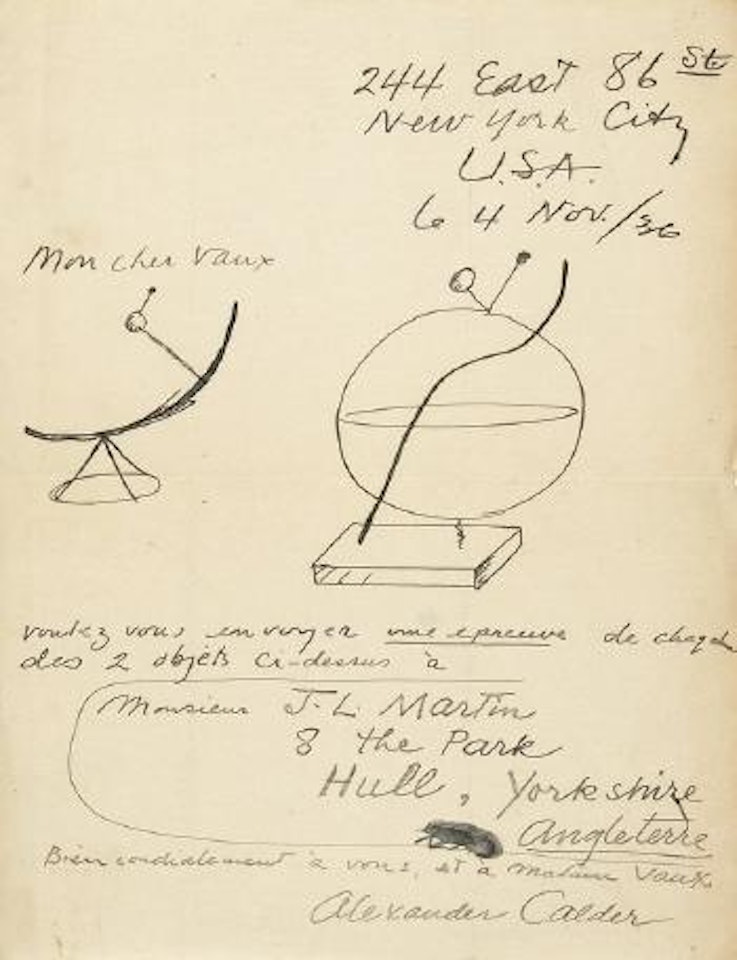 244 East 86 St
New York City
U.S.A.
le 4 Nov./36
Mon cher Vaux
voulez vous envoyer une epreuve de chaque
des 2 objets ci-dessus à
Monsieur J. L. Martin
8 the Park
Hull, Yorkshire
Angleterre
Bien cordialement à vous, et a Madame Vaux.
Alexander Calder